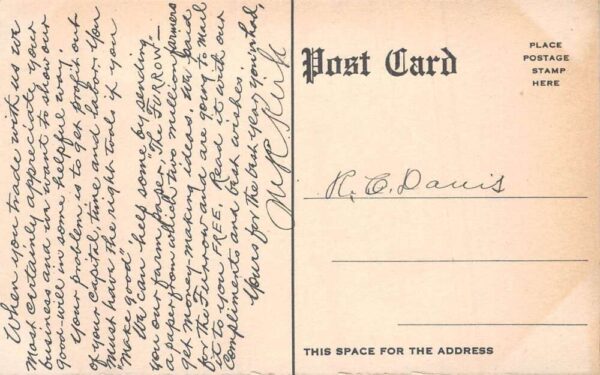 When you trade with us we
most certainly appreciate your
business and in want to show our
good-will in some helpful way.
Your problem is to get profit out
of your capital, time and labor. You
must have the right tools if you
"make good".
We can help some by sending
you our farm paper, "The Furrow" –
a paper from which two million farmers
get money-making ideas. We paid
for the Furrow and are going to mail
it to you FREE. Read it with our
Compliments and best wishes.
Yours for the best year you've had,
Post Card
PLACE
POSTAGE
STAMP
HERE
R. C. Davis
THIS SPACE FOR THE ADDRESS